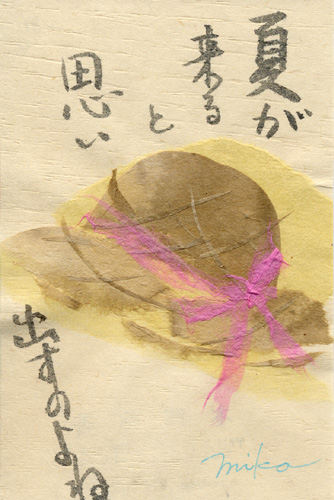 夏が
来る
と
思い
出すのよね
mika